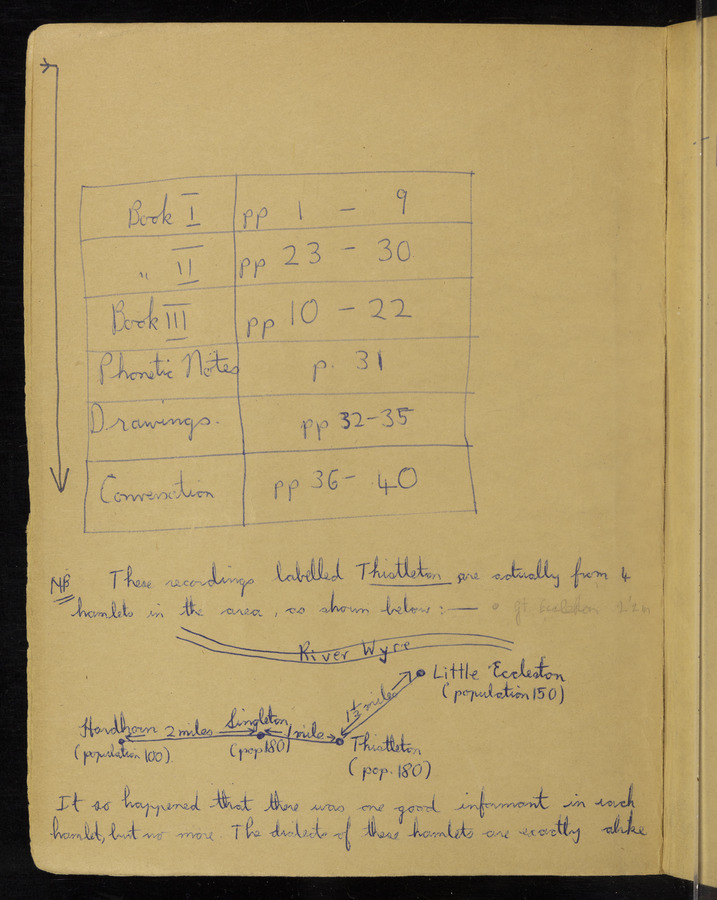 Book I pp 1 – 9
" II pp 23 – 30.
Book III pp 10 – 22
Phonetic Notes p. 31
Drawings. pp 32–35
Conversation pp 36– 40
NB These recordings labelled Thistleton are actually from 4
hamlets in the area, as shown below :— Gt Eccleston
River Wyre
Little Eccleston
(population 150)
1½ miles
Hardhorn 2 miles Singleton 1 mile Thistleton
(population 100) (pop 180) (pop. 180)
It so happened that there was one good informant in each
hamlet, but no more. The dialects of these hamlets are exactly alike